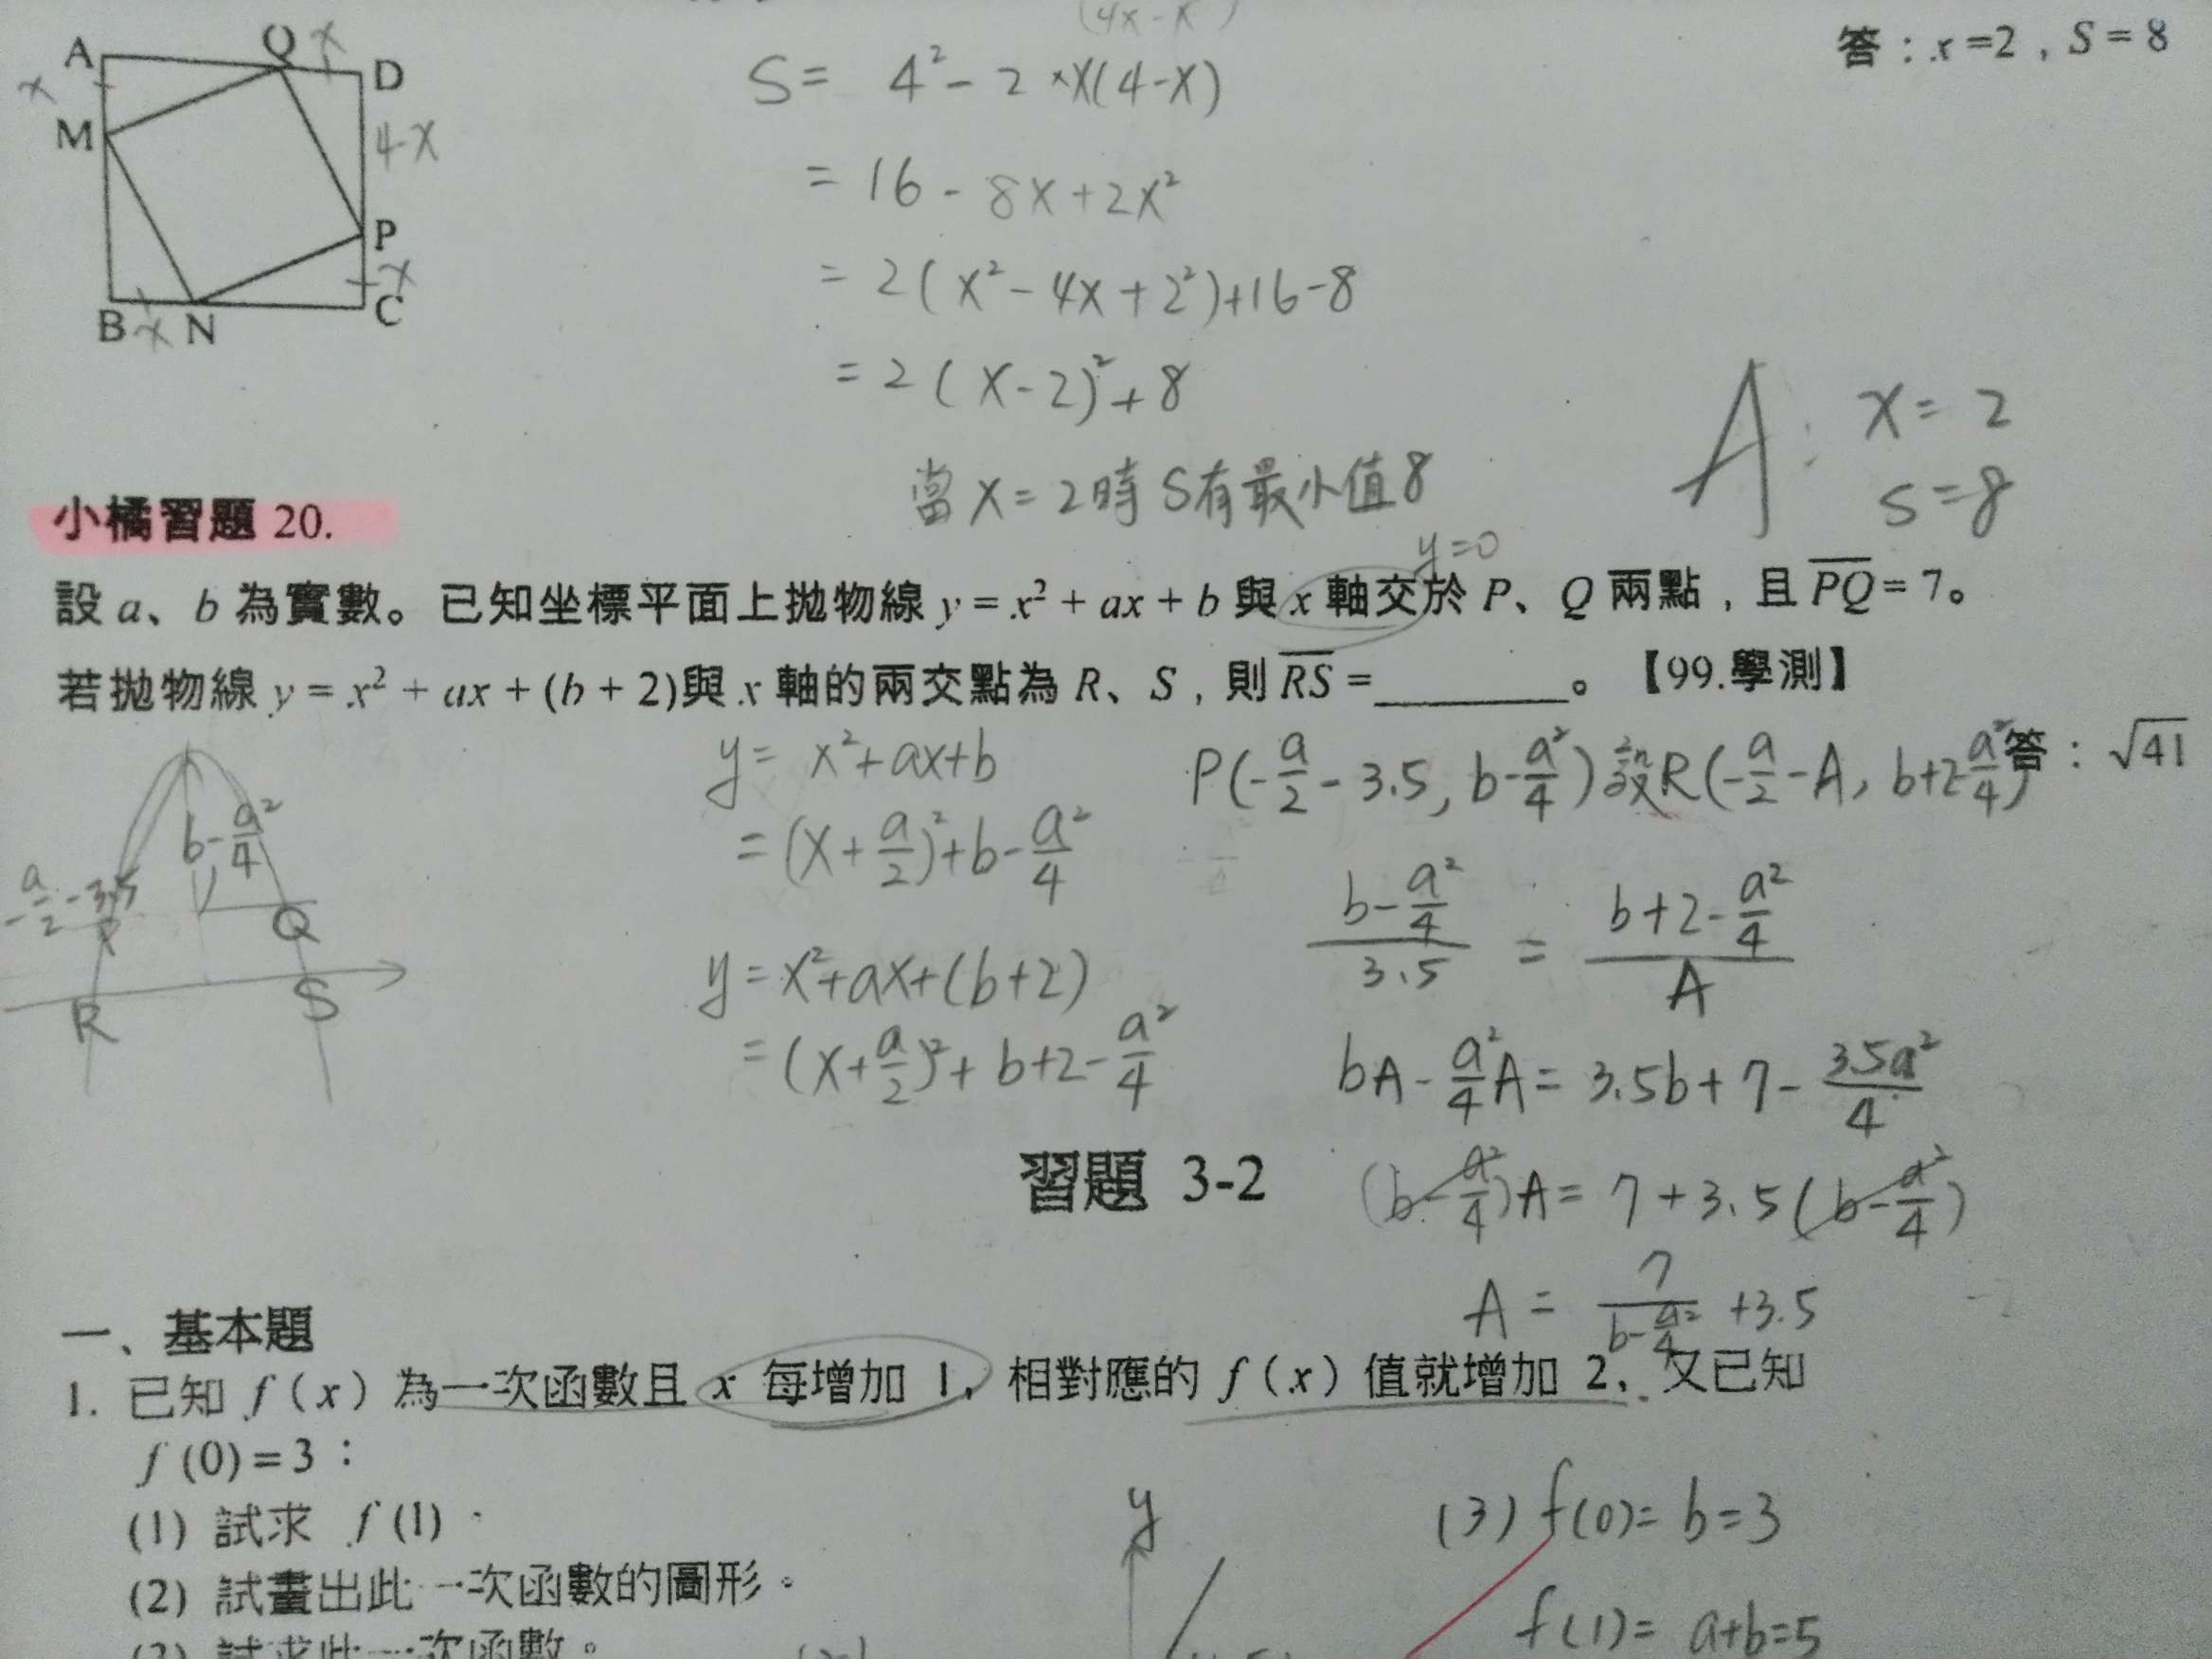 答：x=2，S=8
A Q x D
x
M 4-x
P
x
B x N C
S = 4² - 2 × x(4-x)
= 16 - 8x + 2x²
= 2(x² - 4x + 2²) + 16 - 8
= 2(x-2)² + 8
當 x = 2 時 S 有最小值 8
A: x = 2
S = 8
小橘習題 20.
y=0
設 a、b 為實數。已知坐標平面上拋物線 y = x² + ax + b 與 x 軸交於 P、Q 兩點，且 \overline{PQ} = 7。
若拋物線 y = x² + ax + (b + 2)與 x 軸的兩交點為 R、S，則 \overline{RS} = ________。【99.學測】
答：√41
b-a²/4
-a/2-3.5
Q
R S
y = x²+ax+b
= (x+a/2)²+b-a²/4
y = x²+ax+(b+2)
= (x+a/2)²+b+2-a²/4
P(-a/2-3.5, b-a²/4) 設R(-a/2-A, b+2-a²/4)
(b-a²/4)/3.5 = (b+2-a²/4)/A
bA-a²/4A = 3.5b+7-3.5a²/4
(b-a²/4)A = 7+3.5(b-a²/4)
A = 7/(b-a²/4) +3.5
習題 3-2
一、基本題
1. 已知 f(x) 為一次函數且 x 每增加 1，相對應的 f(x) 值就增加 2，又已知
f(0)=3：
(1) 試求 f(1)．
(2) 試畫出此一次函數的圖形。
(3) 試求此一次函數。
y
(3) f(0)= b=3
f(1)= a+b=5